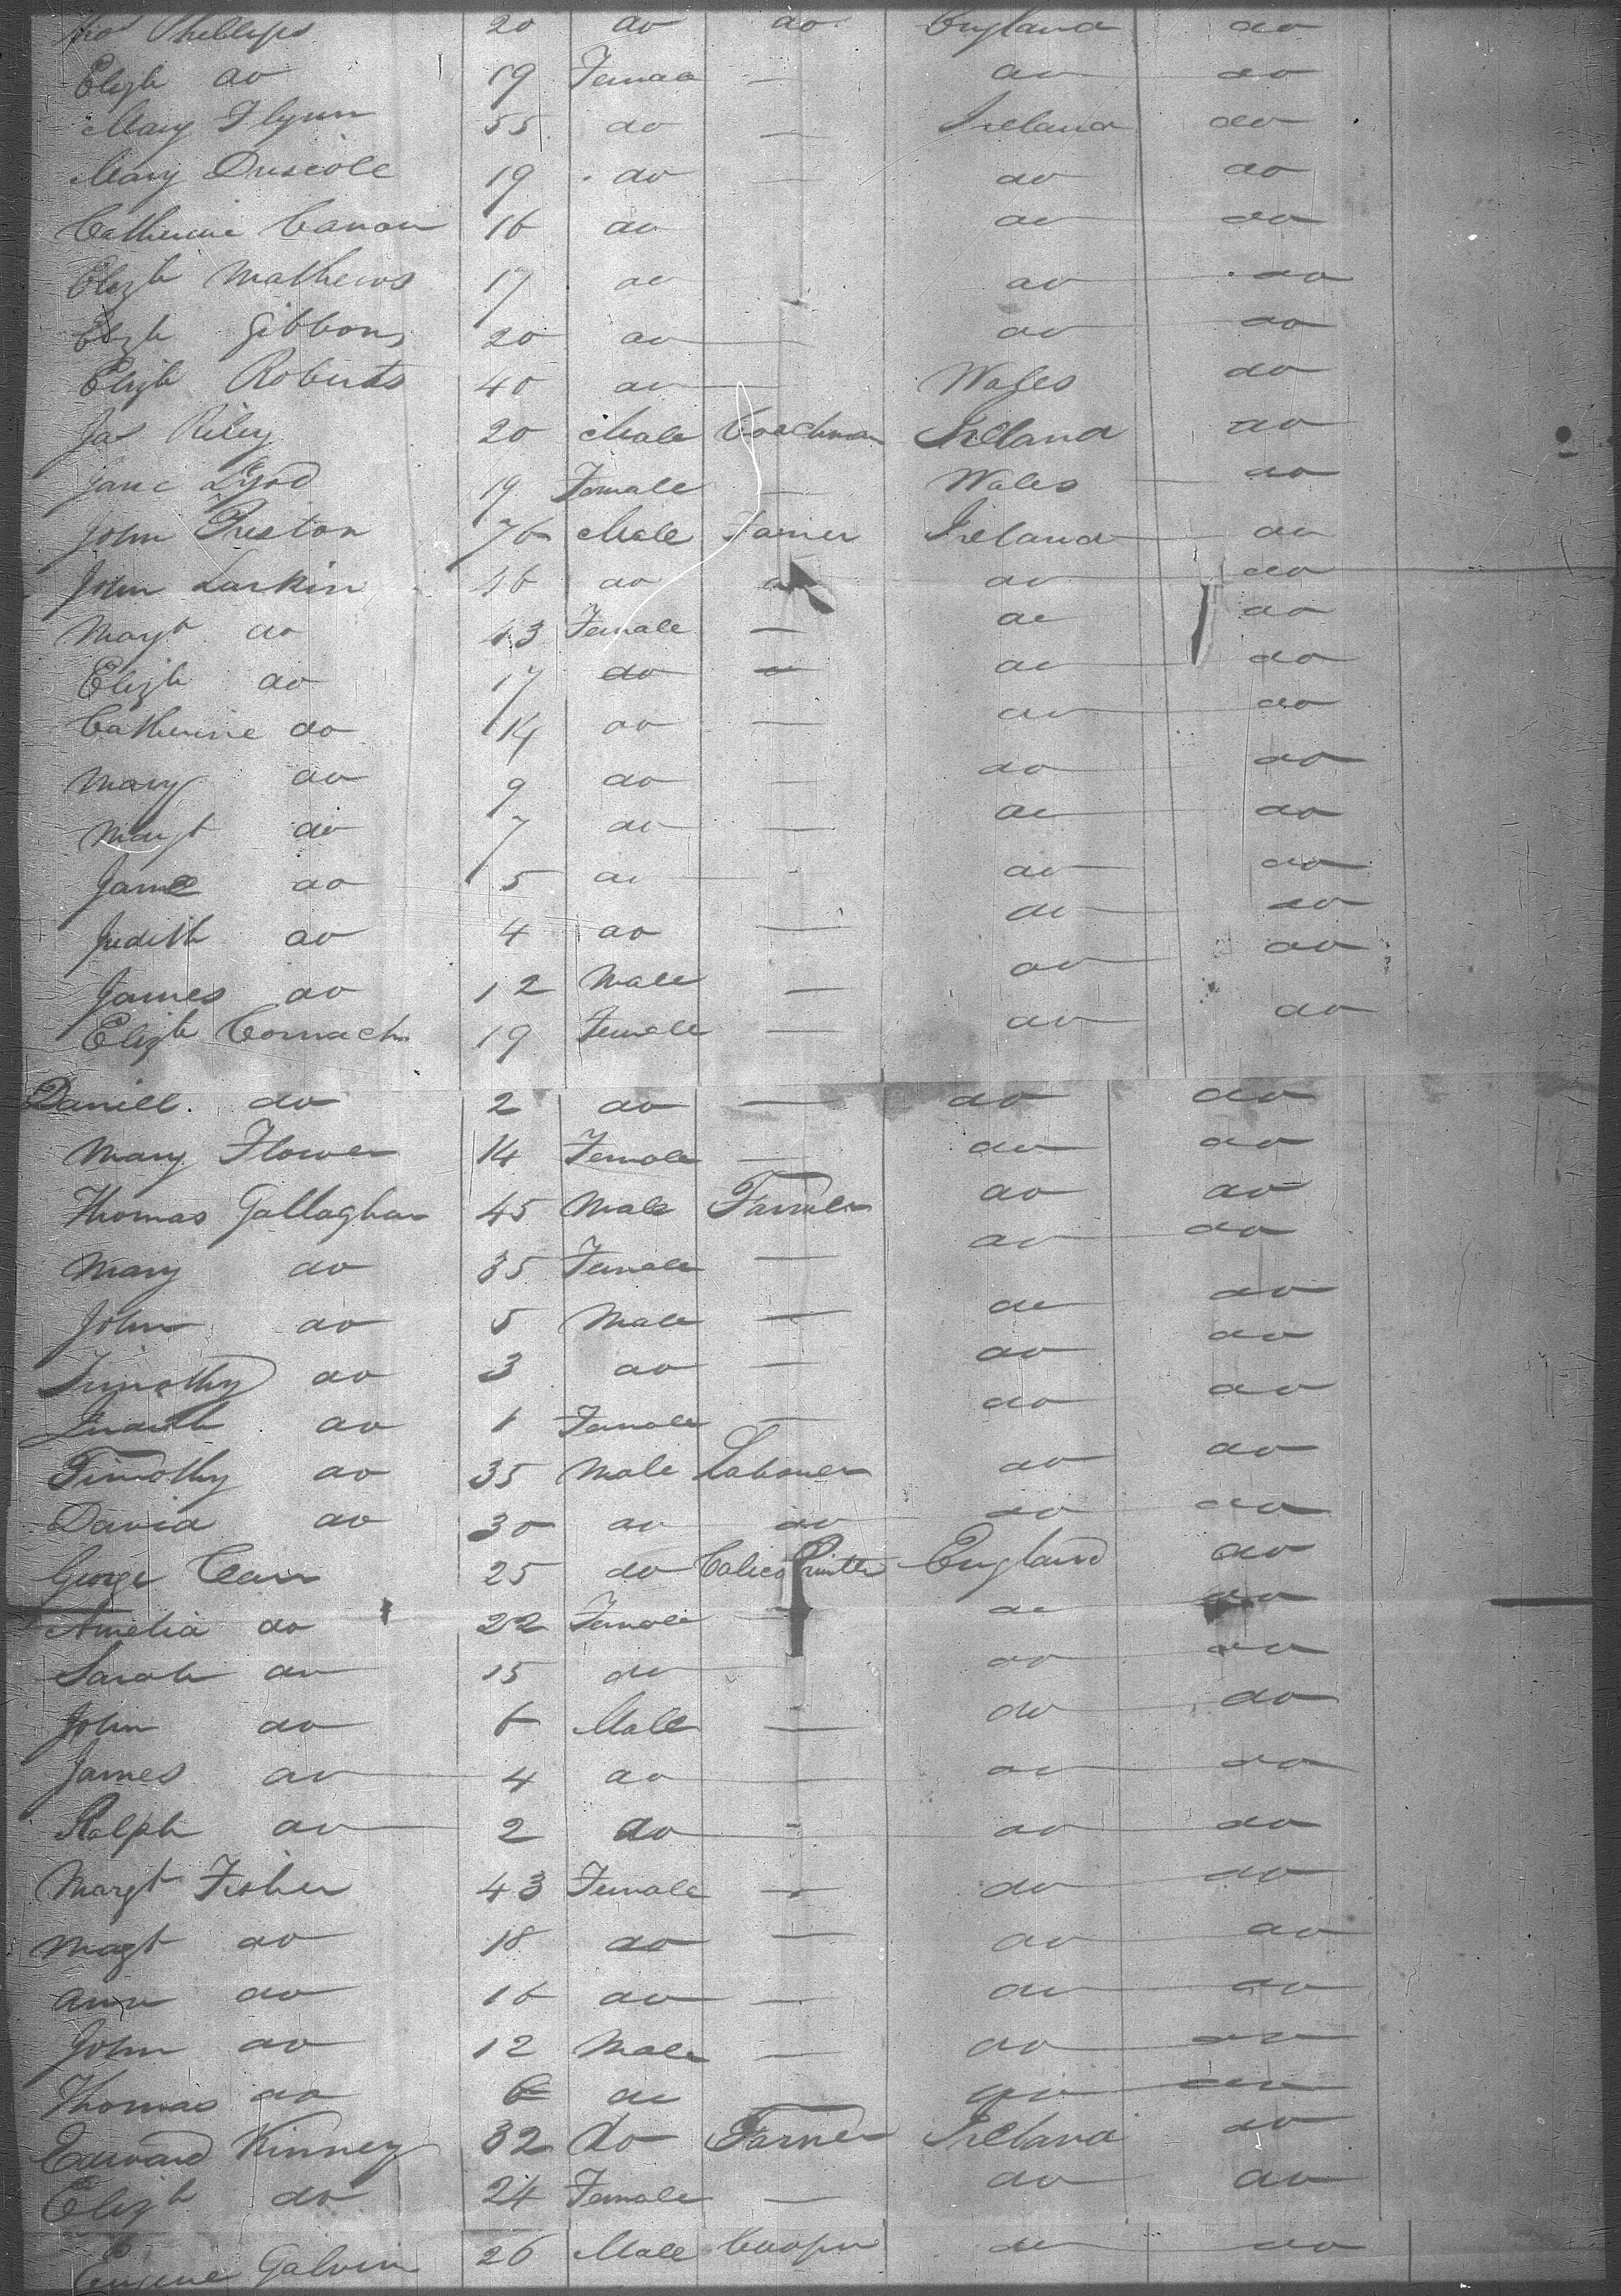 Phillips 20 do do England do
Elizth do 19 Female — do do
Mary Flynn 55 do — Ireland do
Mary Driscole 19 do — do do
Catherine Canan 16 do do do
Elizth Mathews 17 do do do
Elizth Gibbons 20 do — do do
Elizth Roberts 40 do — Wales do
Jas Riley 20 Male Coachman Ireland do
Jane 19 Female — Wales do
John Preston 76 Male Farmer Ireland do
John Larkin 46 do do do do
Margt do 43 Female — do do
Elizth do 17 do — do do
Catherine do 14 do — do do
Mary do 9 do — do do
Margt do 7 do — do do
Jane do 5 do — do do
Judith do 4 do — do do
James do 12 Male — do do
Elizth Cormach 19 Female — do do
Daniel do 2 do — do do
Mary Flower 14 Female — do do
Thomas Gallaghar 45 Male Farmer do do
Mary do 35 Female — do do
John do 5 Male — do do
Timothy do 3 do — do do
Judith do 1 Female — do do
Timothy do 35 Male Labourer do do
David do 30 do do do do
George 25 do Calico Printer England do
Amelia do 22 Female — do do
Sarah do 15 do do do
John do 6 Male — do do
James do 4 do — do do
Ralph do 2 do - do do
Margt Fisher 43 Female — do do
Magt do 18 do — do do
Ann do 16 do — do do
John do 12 Male — do do
Thomas do 6 do do do
Edward Kinney 32 do Farmer Ireland do
Elizth do 24 Female — do do
Eugene Galvin 26 Male Cooper do do